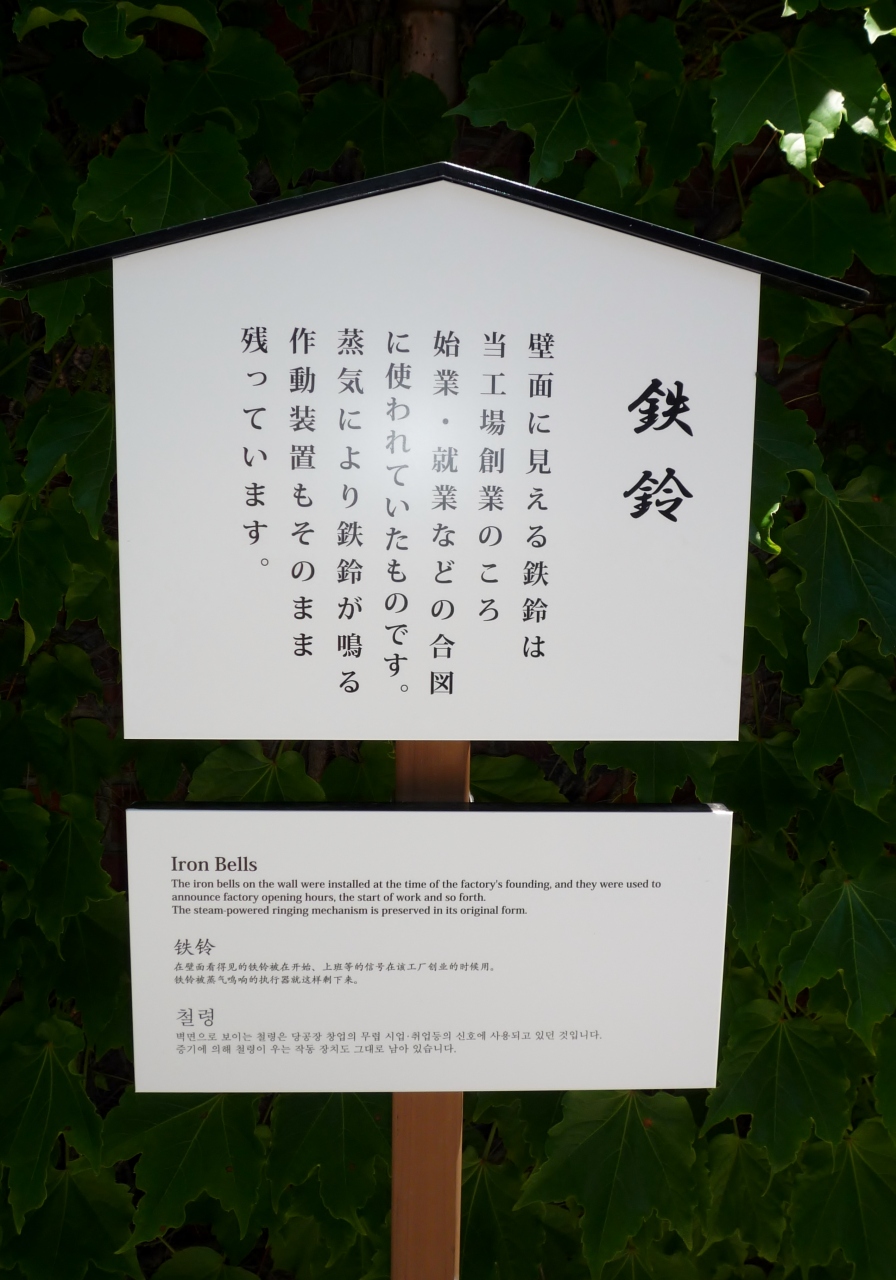 鉄鈴
壁面に見える鉄鈴は
当工場創業のころ
始業・就業などの合図
に使われていたものです。
蒸気により鉄鈴が鳴る
作動装置もそのまま
残っています。
Iron Bells
The iron bells on the wall were installed at the time of the factory's founding, and they were used to
announce factory opening hours, the start of work and so forth.
The steam-powered ringing mechanism is preserved in its original form.
铁铃
在壁面看得见的铁铃被在开始、上班等的信号在该工厂创业的时候用。
铁铃被蒸气鸣响的执行器就这样剩下来。
철령
벽면으로 보이는 철령은 당공장 창업의 무렵 시업·취업등의 신호에 사용되고 있던 것입니다.
증기에 의해 철령이 우는 작동 장치도 그대로 남아 있습니다.